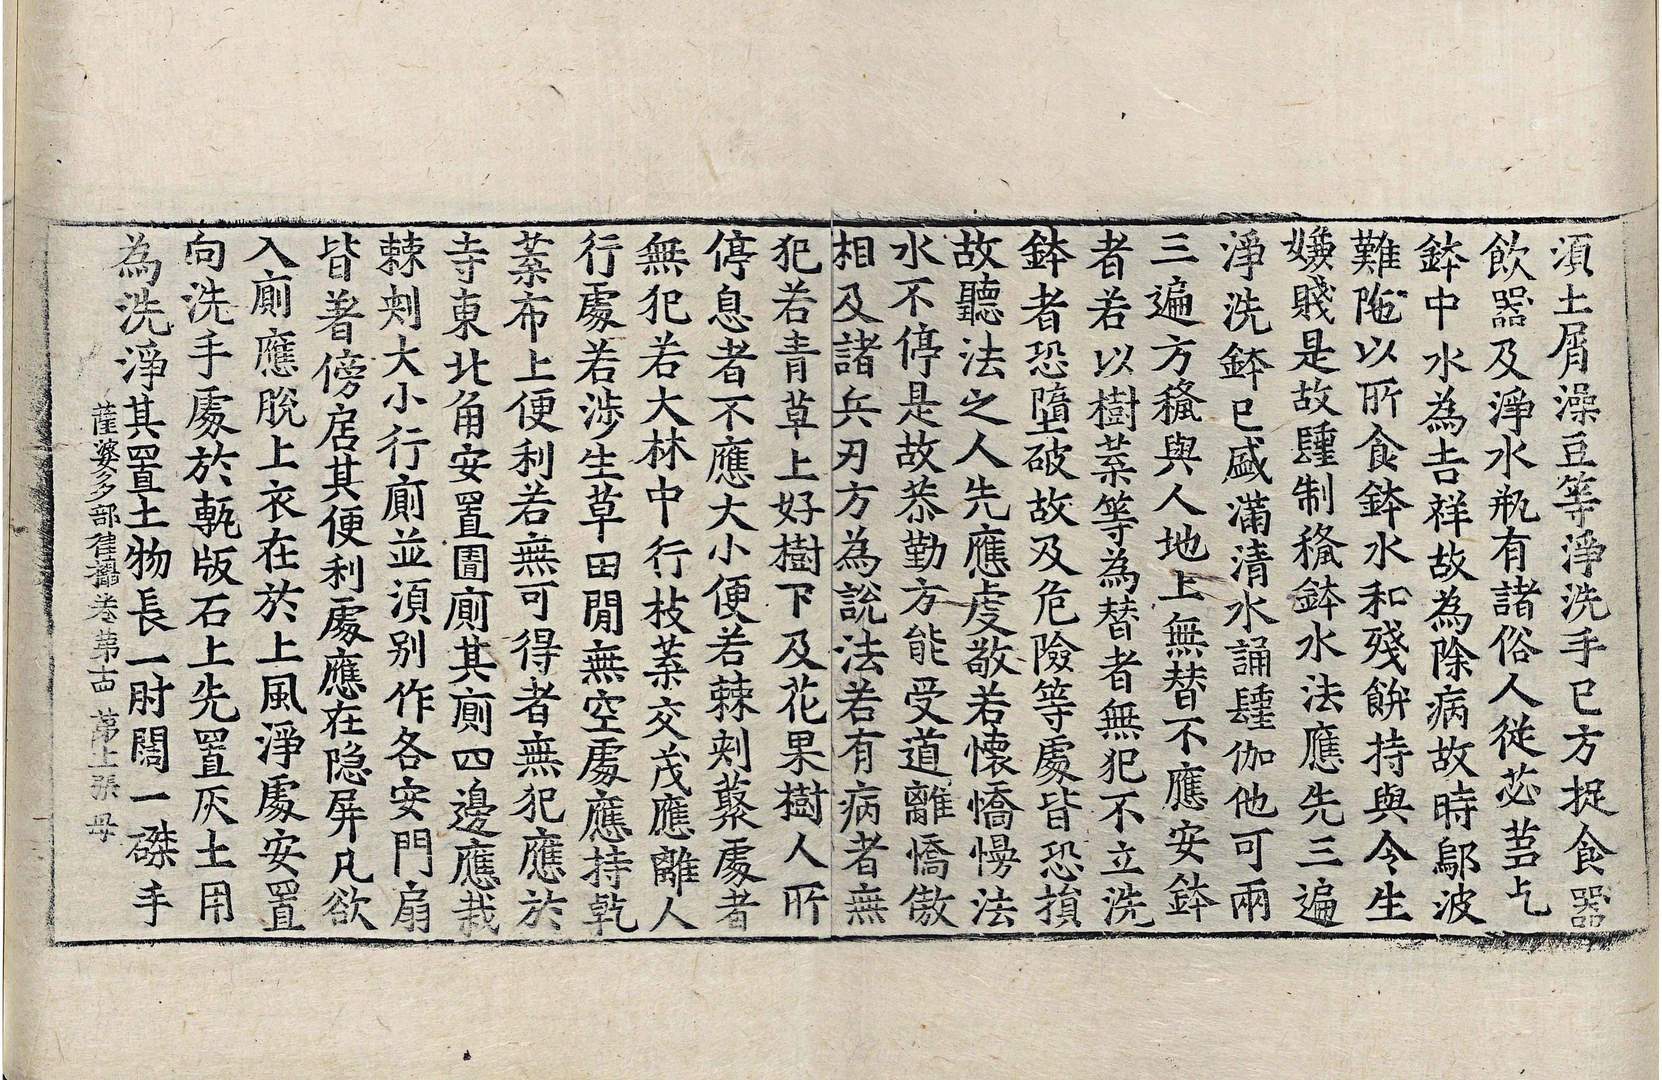 須土屑澡豆等淨洗手已方捉食器
飲器及淨水瓶有諸俗人從苾蒭乞
鉢中水為吉祥故為除病故時鄔波
難陁以所食鉢水和殘餅持與令生
嫌賤是故隨制穢鉢水法應先三遍
淨洗鉢已盛滿清水誦伽他可兩
三遍方穢與人地上無替不應安鉢
者若以樹葉等為替者無犯不立洗
鉢者恐墮破故及危險等處皆恐損
故聽法之人先應虔敬若懷憍慢法
水不停是故恭勤方能受道離憍傲
相及諸兵刃方為說法若有病者無
犯若青草上好樹下及花果樹人所
停息者不應大小便若棘刺藂處者
無犯若大林中行枝葉交茂應離人
行處若涉生草田閒無空處應持乾
葉布上便利若無可得者無犯應於
寺東北角安置圊廁其廁四邊應栽
棘刺大小行廁並須別作各安門扇
皆著傍居其便利處應在隱屏凡欲
入廁應脫上衣在於上風淨處安置
向洗手處於甎版石上先置灰土用
為洗淨其置土物長一肘闊一磔手
薩婆多部律攝卷第十四 第七張 母